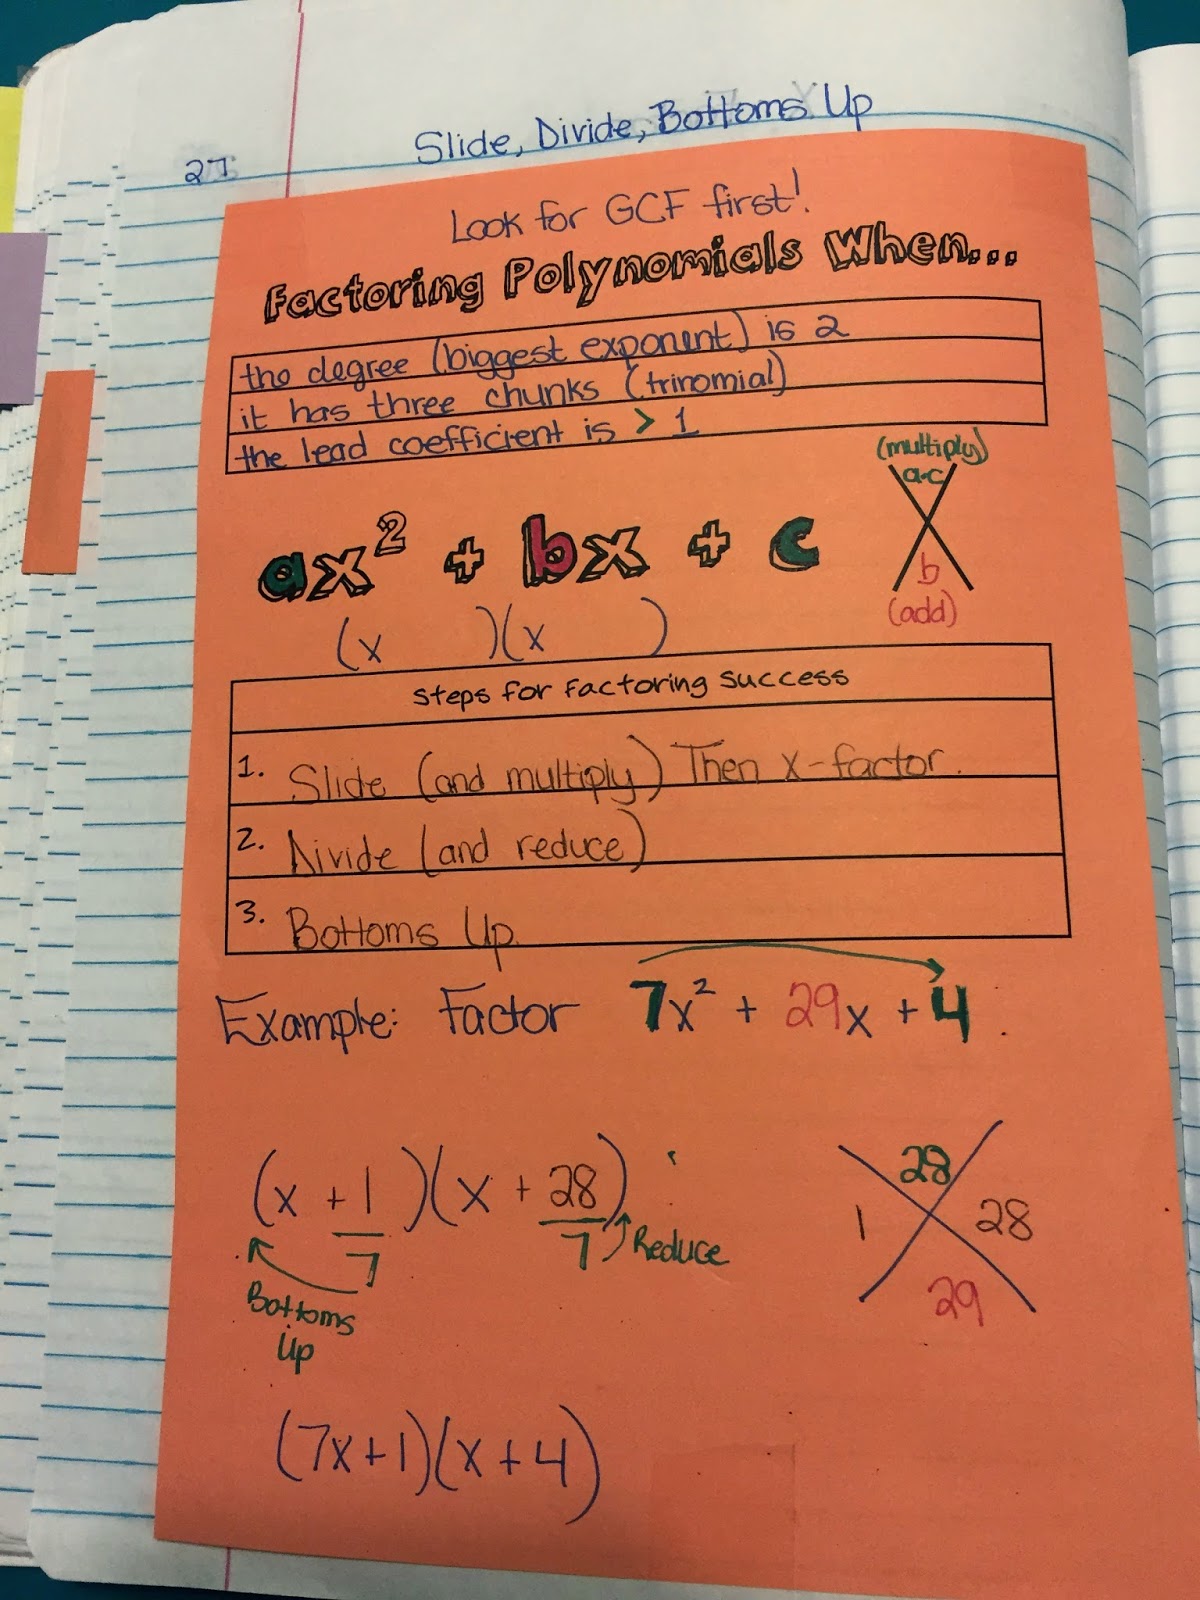 Slide, Divide, Bottoms Up
27
Look for GCF first!
Factoring Polynomials When...
the degree (biggest exponent) is 2
it has three chunks (trinomial)
the lead coefficient is > 1
(multiply)
a·c
b
(add)
ax² + bx + c
(x )(x )
Steps for Factoring Success
1. Slide (and multiply) Then x-factor.
2. Divide (and reduce)
3. Bottoms Up.
Example: Factor 7x² + 29x + 4.
(x + 1/7)(x + 28/7)
Reduce
Bottoms
Up
28
1 28
29
(7x+1)(x+4)